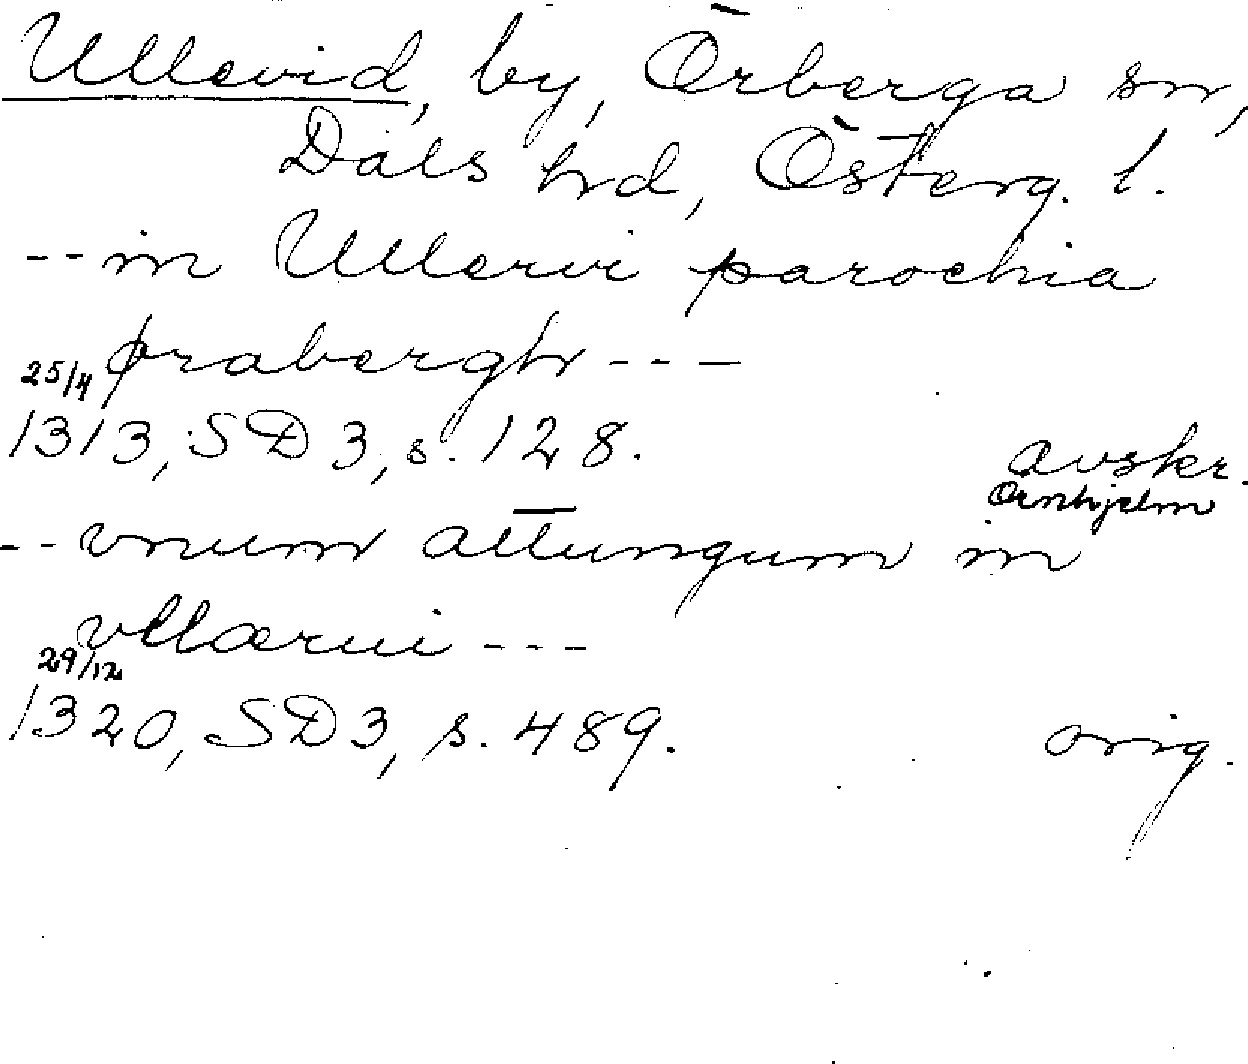 Ullevid, by, Örberga sn,
Dals hrd, Österg. l.
-- in Ullervi parochia
ørabergh ---
25/4
1313, SD 3, s. 128. avskr.
Örnhjelm
-- vnum attungum in
vllærui ---
29/12
1320, SD 3, s. 489. orig.